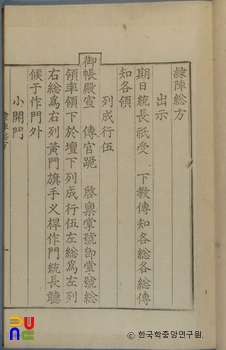 隷陣總方
出示
期日統長祇受 下敎傳知各總各總傳
知各領
列成行伍
御帳殿宣 傳官跪 啓稟掌號卽掌號總
領率領下於壇下列成行伍左總爲左列
右總爲右列黃門旗手义桿作門統長聽
候于作門外
小開門
한국학중앙연구원